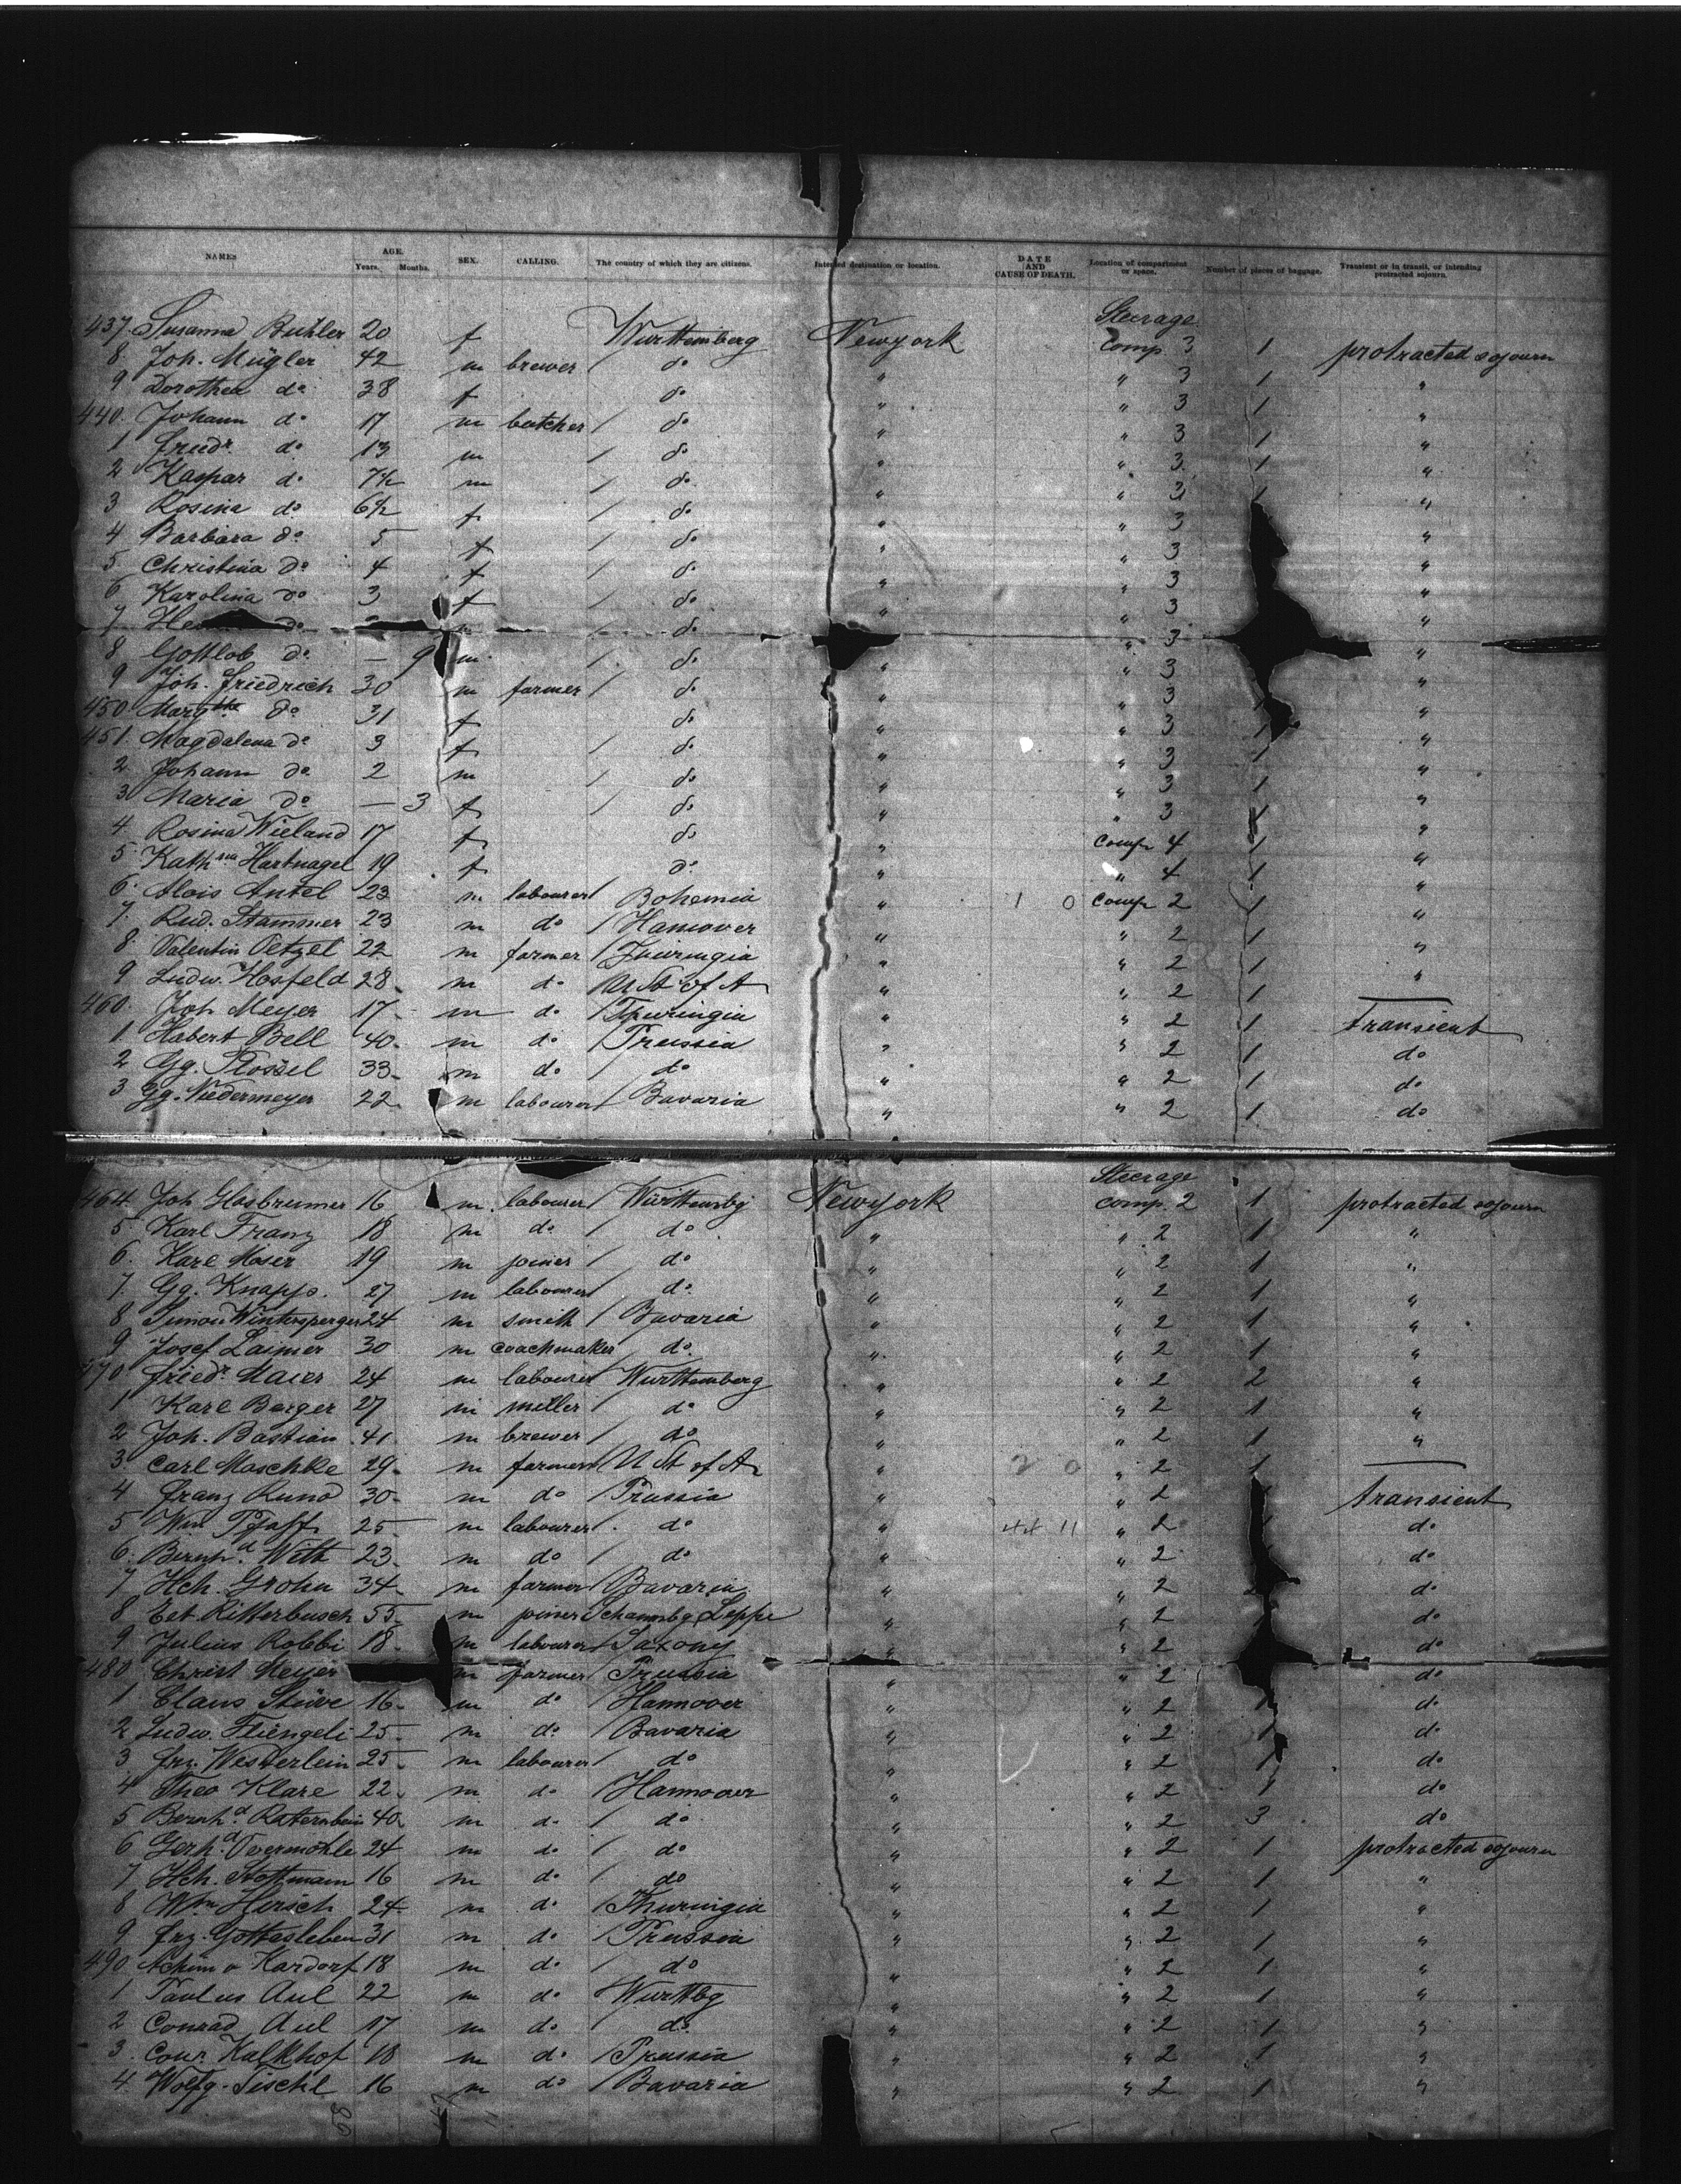 NAMES AGE. Years. Months. SEX. CALLING. The country of which they are citizens. Intended destination or location. DATE AND CAUSE OF DEATH. Location of compartment or space. Number of pieces of baggage. Transient or in transit, or intending protracted sojourn.
Steerage
437. Susanna Buhler 20 f Württemberg Newyork Comp. 3 1 protracted sojourn
8. Joh. Mügler 42 m brewer / do " " 3 1 "
9 Dorothea do 38 f do " " 3 1 "
440. Johann do 17 m butcher / do " " 3 1 "
1 Friedr. do 13 m / do " " 3 1 "
2 Kaspar do 7½ m / do " " 3 1 "
3 Rosina do 6½ f / do " " 3 "
4 Barbara do 5 f / do " " 3 "
5 Christina do 4 f / do " " 3 "
6 Karolina do 3 f / do " " 3 "
7 do / do " 3 "
8 Gottlob do — 9 m / do " " 3 "
9 Joh. Friedrich 30 m farmer / do " " 3 "
450. do 31 f do " " 3 1 "
451. Magdalena do 3 f / do " " 3 1 "
2 Johann do 2 m / do " " 3 1 "
3 Maria do — 3 f / do " " 3 1 "
4 Rosina Wieland 17 f do " Comp 4 1 "
5. Hartnagel 19 f do " " 4 1 "
6. Alois Antel 23 m labourer / Bohemia " 1 0 Comp 2 1 "
7. Rud. Stammer 23 m do / Hanover " " 2 1 "
8. Valentin Oetzel 22 m farmer / Thuringia " " 2 1 "
9 Ludw. Hosfeld 28. m do / U St of A " " 2 1
460. Joh Meyer 17. m do / Thuringia " " 2 1 transient
1. Hubert Bell 40. m do / Prussia " " 2 1 do
2 Gg. 33. m do / do " " 2 1 do
3 Gg. Niedermeyer 22. m labourer / Bavaria " " 2 1 do
Steerage
464 Joh Glasbrenner 16 m labourer / Württembg Newyork comp. 2 1 protracted sojourn
5 Karl Franz 18 m do / do " " 2 1 "
6. Karl Moser 19 m joiner / do " " 2 1 "
7. Gg. Knapp. 27 m labourer / do " " 2 1 "
8 Simon Wintersperger 24 m smith / Bavaria " " 2 1 "
9 Josef Laimer 30 m coachmaker / do " " 2 1 "
470 Friedr. Maier 24 m labourer / Württemberg " " 2 2 "
1 Karl Berger 27 m miller / do " " 2 1 "
2 Joh. Bastian 41. m brewer / do " " 2 1 "
3 Carl Maschke 29. m farmer / U St of A " 2 0 " 2 1
4 Franz Kuno 30. m do / Prussia " " 2 transient
5 Wm Pfaff 25 m labourer / do " 44 11 " 2 do
6. Bernhd. Witt 23. m do / do " " 2 do
7 Hch. Grohn 34. m farmer / Bavaria " " 2 do
8 Ritterbusch 55. m joiner Schaumbg Lippe " " 2 do
9 Julius Robbi 18. m labourer / Saxony " " 2 do
480 Christ Meyer m farmer / Prussia " 2 do
1 Claus Stüve 16. m do / Hannover " " 2 1 do
2 Ludw. 25. m do / Bavaria " " 2 1 do
3 Frz. Westerlein 25. m labourer / do " " 2 1 do
4 Theo Klare 22. m do / Hannover " " 2 1 do
5 Bernhd. 40. m do / do " " 2 3 do
6 Gerhd. Overmöhle 24 m do / do " " 2 1 protracted sojourn
7 Hch. Stottmann 16 m do / do " " 2 1 "
8 Wm Hersch 24 m do / Thuringia " " 2 1 "
9 Frz. Gottesleben 31 m do / Prussia " " 2 1 "
490 Achim v Kardorf 18 m do / do " " 2 1 "
1 Paulus Aul 22 m do / Württbg " " 2 1 "
2 Conrad Aul 17 m do / do " " 2 1 "
3. Conr. Kalkhof 18 m do / Prussia " " 2 1 "
4 Wolfg. Tischl 16 m do / Bavaria " " 2 1 "